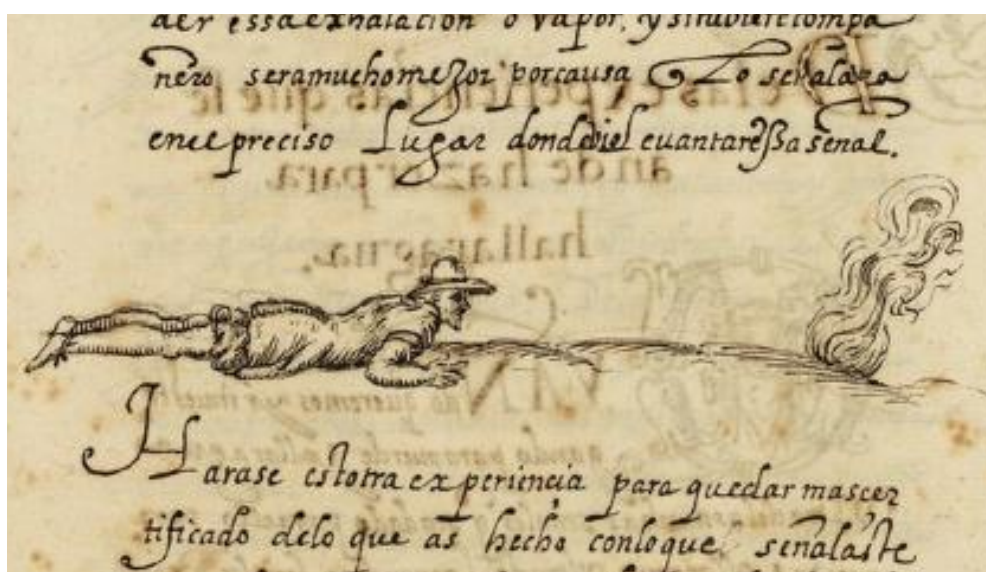 der essa exhalacion o vapor, y si tubiere compa
ñero sera mucho mejor por causa q̃ lo señalara
en el preciso Lugar donde le euantare essa señal.
Harase estotra experiencia para quedar mas cer
tificado delo que as hecho conloque señalaste